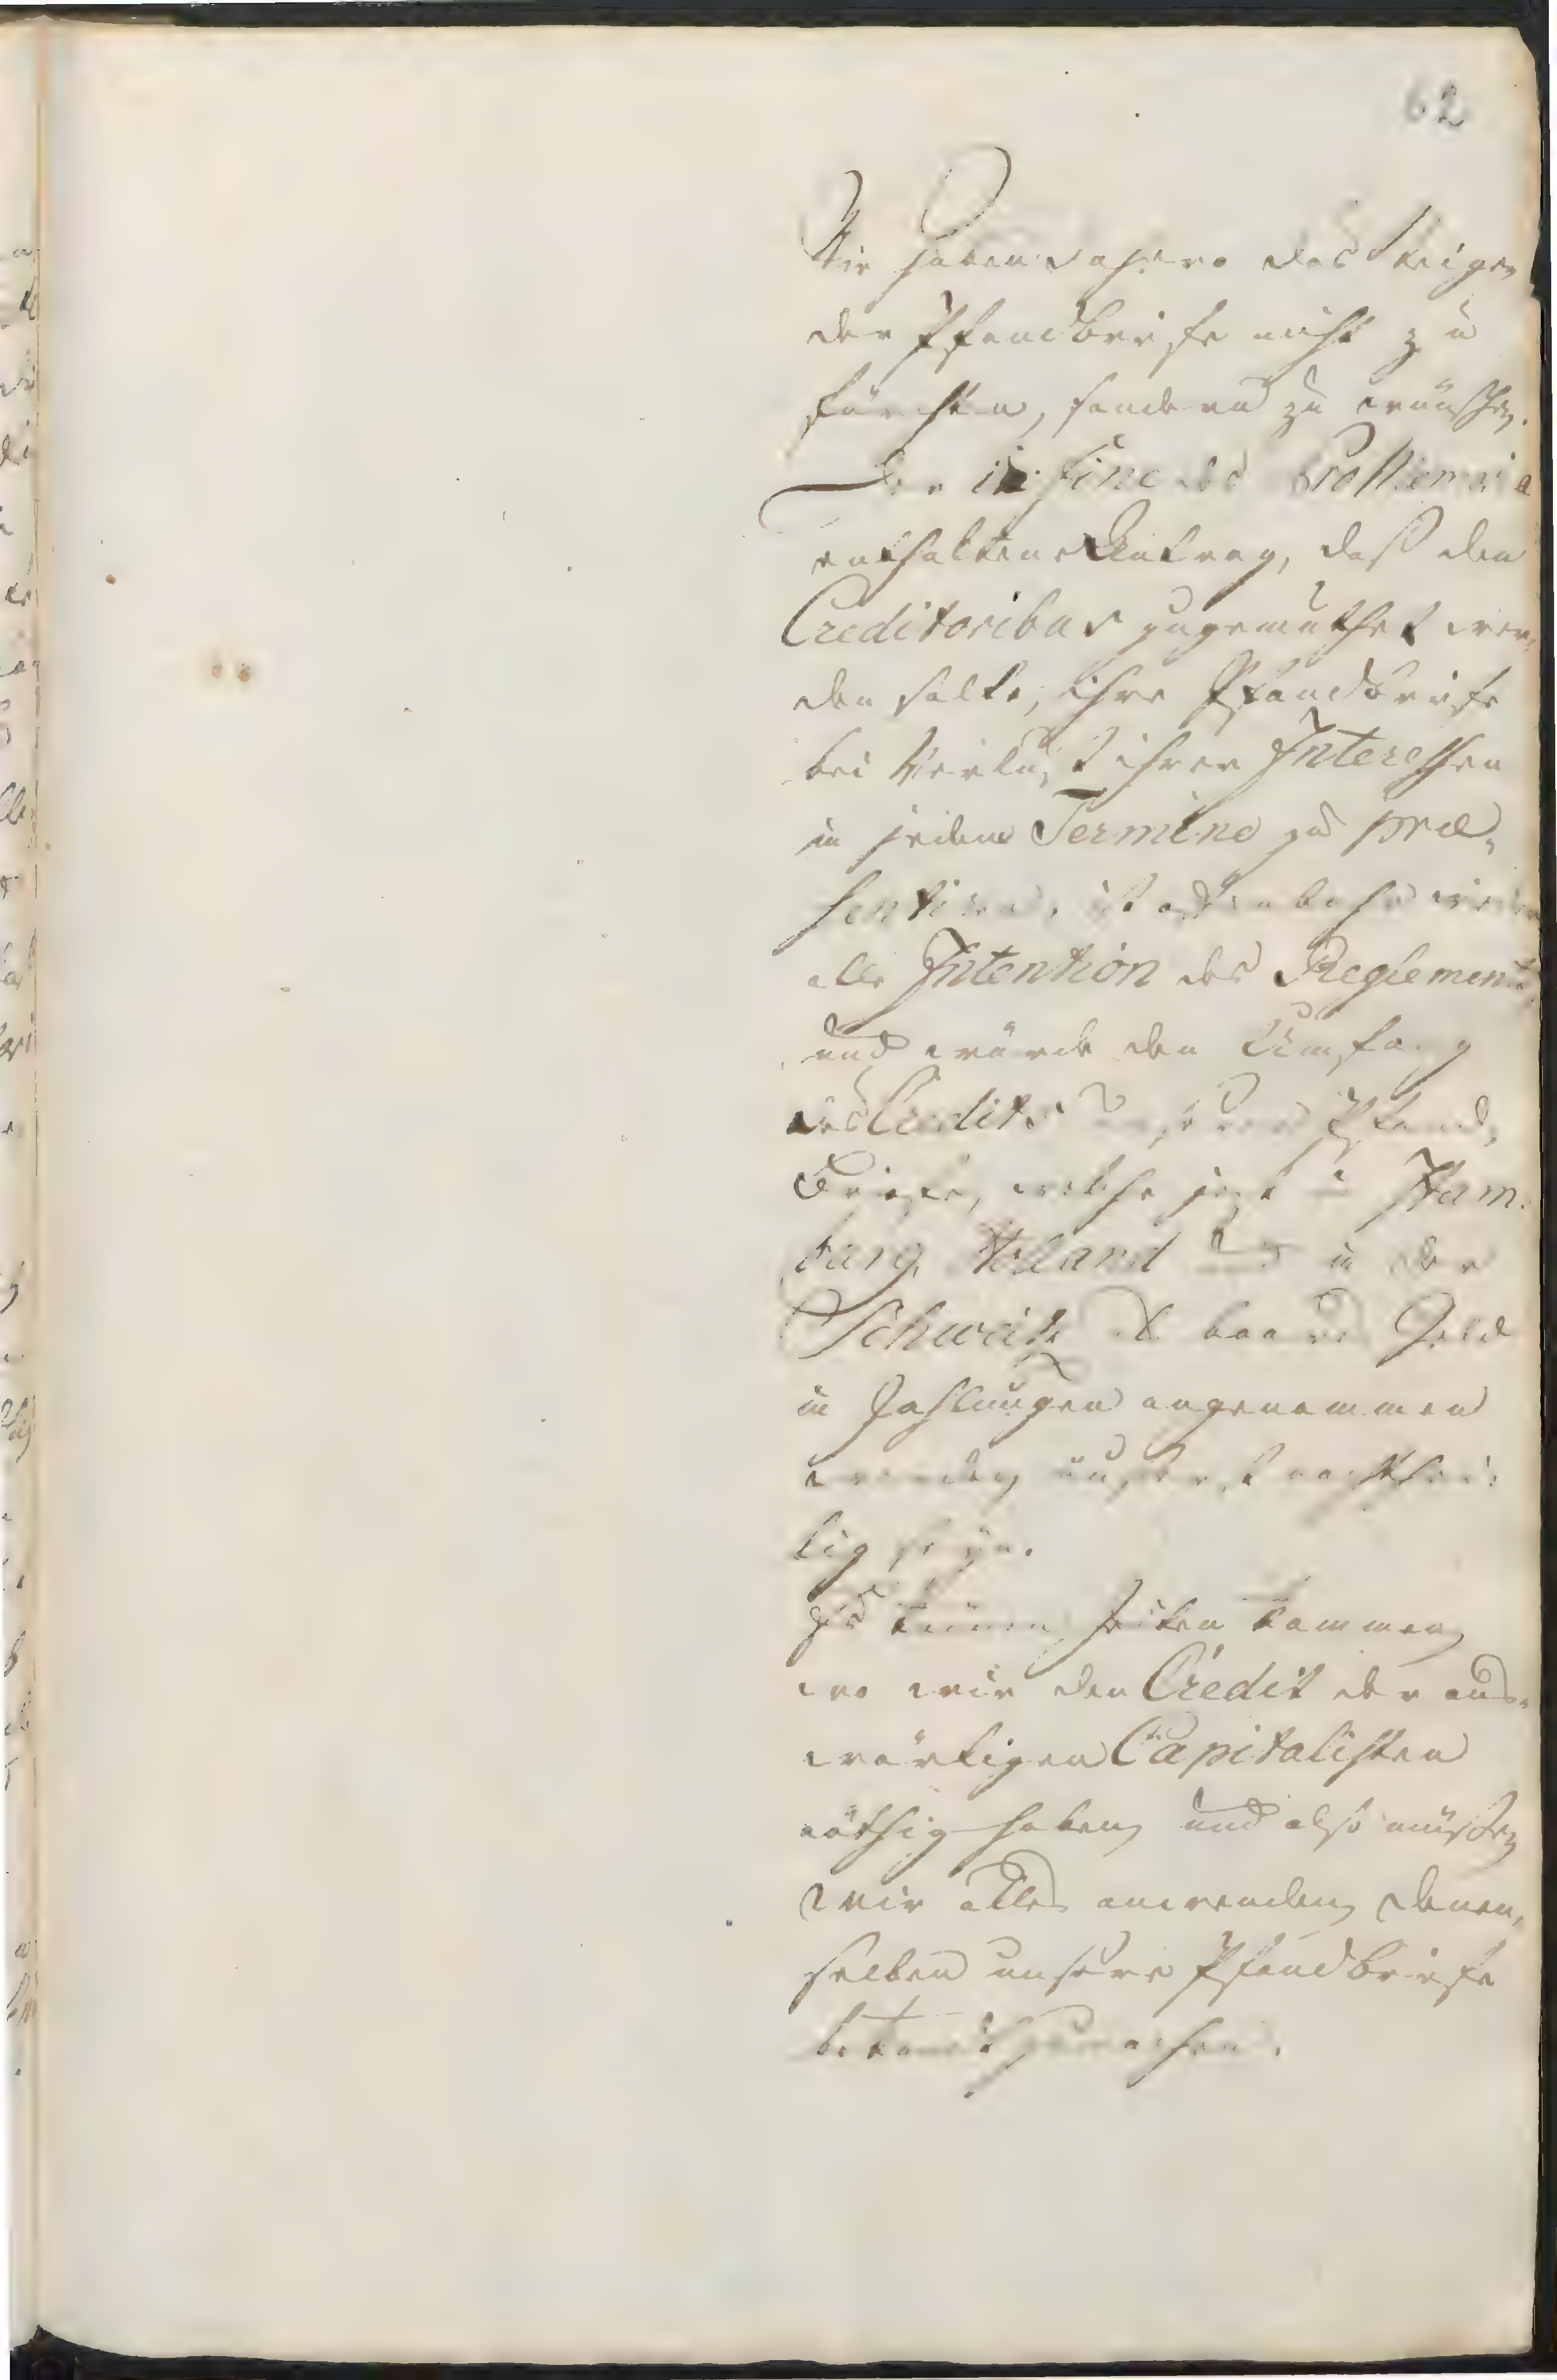 62
Wir haben dahero das Steigen
der Pfandbriefe nicht zu
fürchten, sondern zu wünschen.
Der in fine des Pro Memoria
enthaltene Antrag, daß den
Creditoribus zugemuthet wer-
den solte, ihre Pfandbriefe
bei Verlust ihrer Interessen
in jedem Termino zu præ-
sentiren, ist offenbahr wieder
alle Intention des Reglements
und würde den Umfang
des Credits unserer Pfand-
briefe, welche jezt in Ham-
burg, Holland und in der
Schweitz als baares Geld
in Zahlungen angenommen
werden, äußerst nachthei-
lig seyn.
Es können Zeiten kommen,
wo wir den Credit der aus-
wärtigen Capitalisten
nöthig haben, und also müßen
wir alles anwenden, denen-
selben unsere Pfandbriefe
bekannt zu machen.